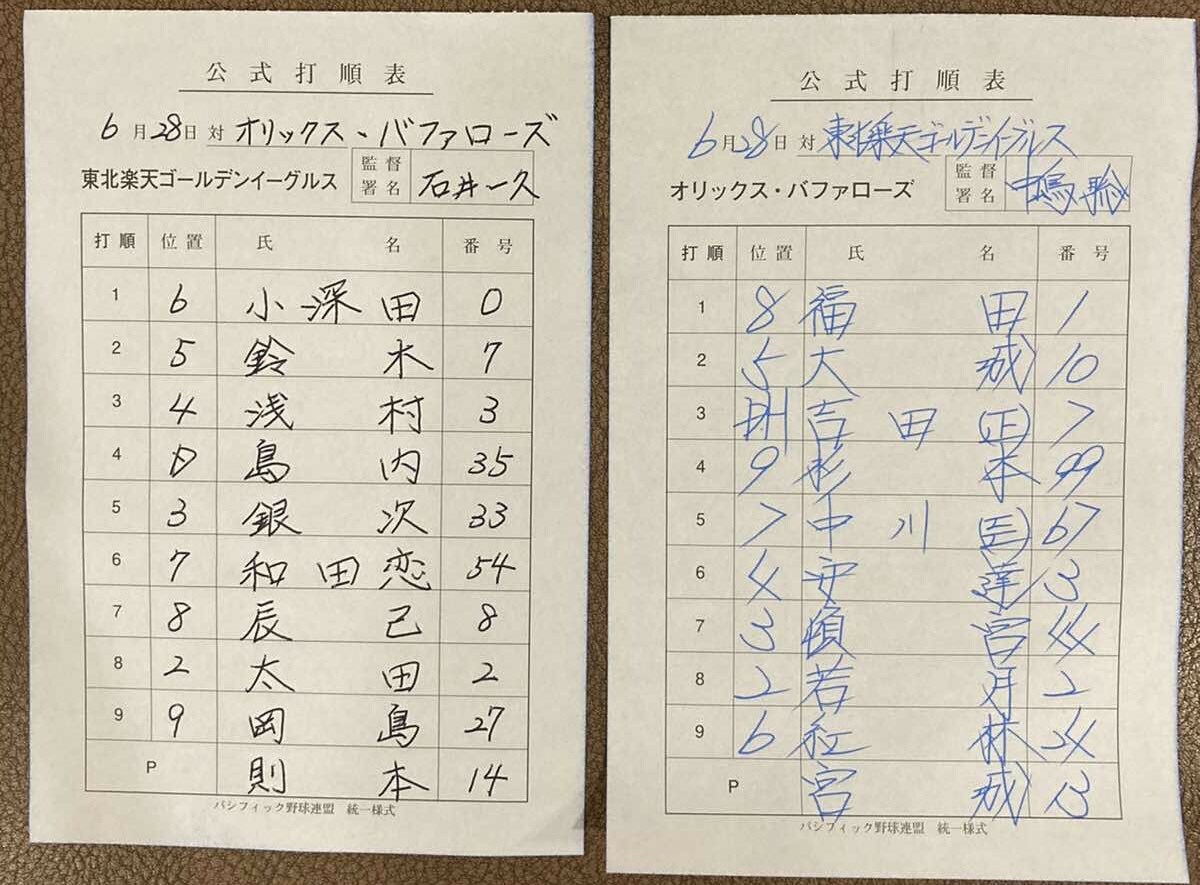 公式打順表
6月28日 対 オリックス・バファローズ
東北楽天ゴールデンイーグルス 監督署名 石井一久
打順 位置 氏名 番号
1 6 小深田 0
2 5 鈴木 7
3 4 浅村 3
4 D 島内 35
5 3 銀次 33
6 7 和田恋 54
7 8 辰己 8
8 2 太田 2
9 9 岡島 27
P 則本 14
パシフィック野球連盟 統一様式
公式打順表
6月28日 対 東北楽天ゴールデンイーグルス
オリックス・バファローズ 監督署名 中嶋聡
打順 位置 氏名 番号
1 8 福田 1
2 5 大城 10
3 DH 吉田(正) 7
4 9 杉本 99
5 7 中川(圭) 67
6 4 安達 3
7 3 頓宮 44
8 2 若月 2
9 6 紅林 24
P 宮城 13
パシフィック野球連盟 統一様式